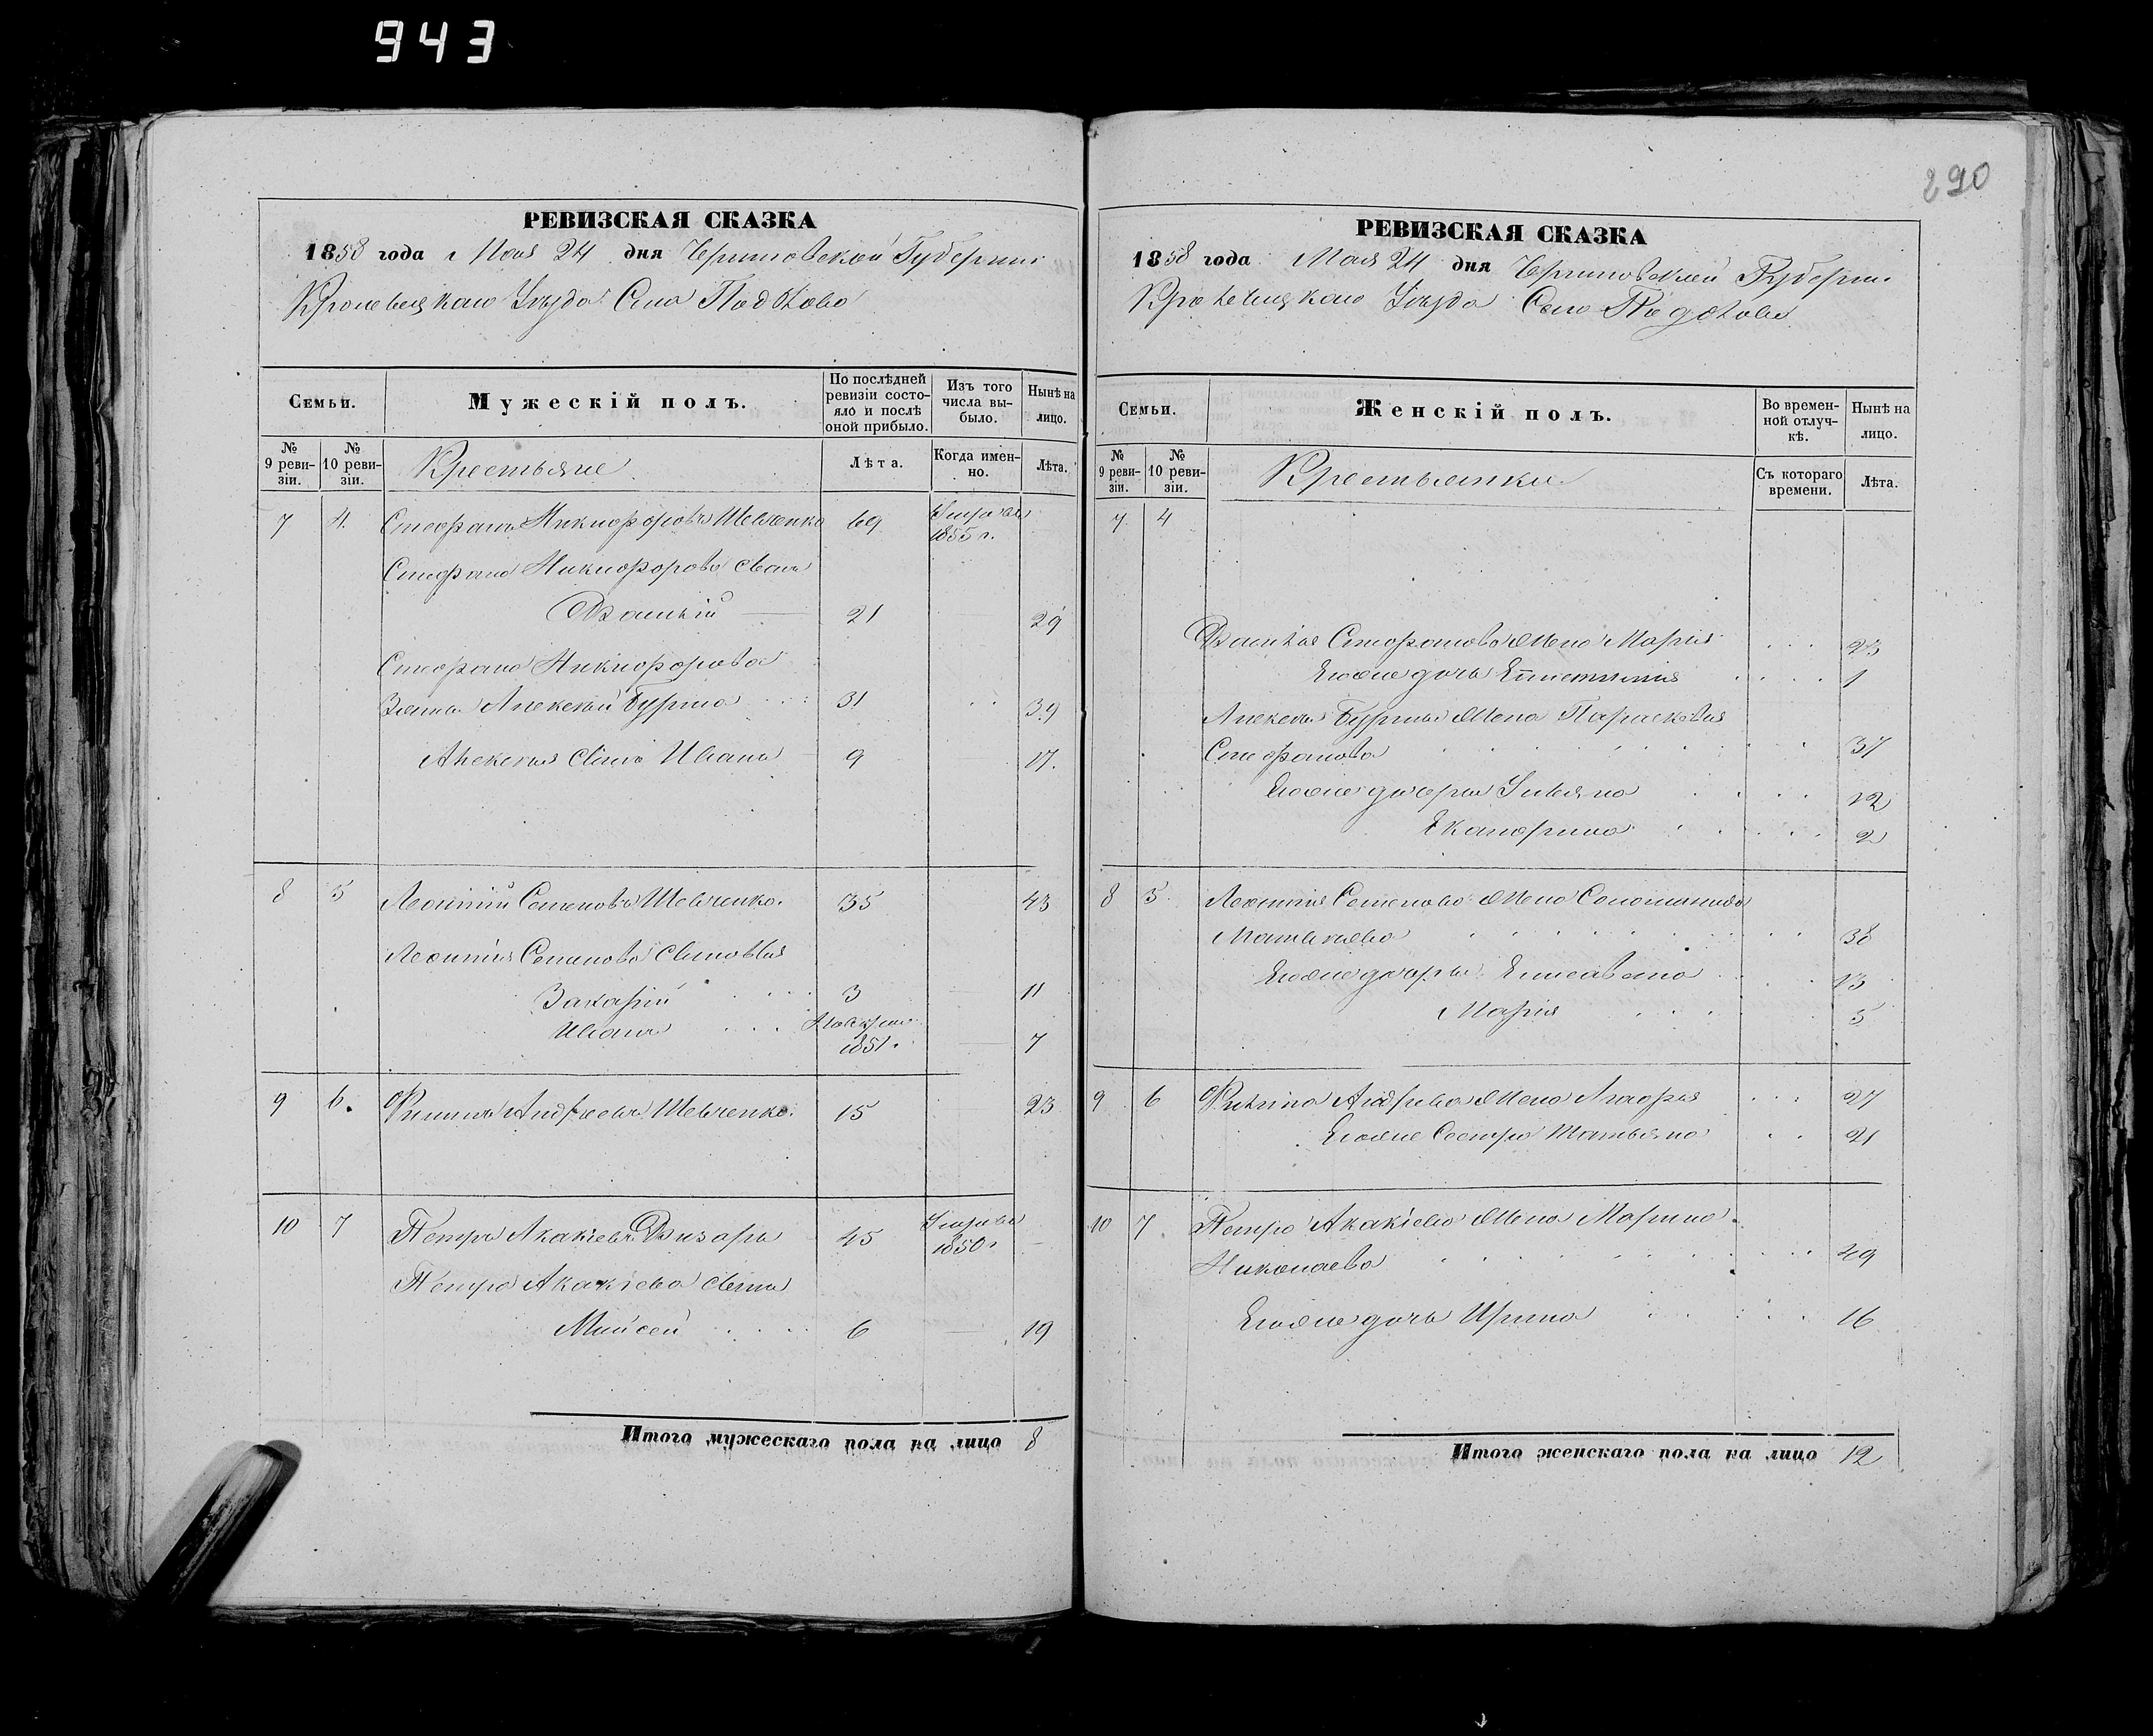 943
290
РЕВИЗСКАЯ СКАЗКА
1858 года Мая 24 дня Черниговской Губернии
Кролевецкаго Уѣзда Села Подолова
Семьи.
Мужескій полъ.
По послѣдней ревизіи состояло и послѣ оной прибыло.
Изъ того числа выбыло.
Нынѣ на лицо.
№ 9 ревизіи.
№ 10 ревизіи.
Крестьяне
Лѣта.
Когда именно.
Лѣта.
7 4 Стефанъ Никифоровъ Шевченко 69 Умре въ
1855 г.
Стефана Никифорова сынъ
21 29
Стефана Никифорова
Зять Алексѣй Бурма 31 39
Алексѣя сынъ Иванъ 9 17.
8 5 Леонтій Семеновъ Шевченко. 35 43
Леонтія Семенова сыновья
Захарій 3 11
Иванъ
1851 7
9 6. Филипъ Андреевъ Шевченко. 15 23
10 7 Петръ Акакіевъ 45
1850
Петра Акакіева сынъ
Мойсей 6 19
Итого мужескаго пола на лицо 8
РЕВИЗСКАЯ СКАЗКА
1858 года Мая 24 дня Черниговской Губернии
Кролевецкаго Уѣзда Села Подолова
Семьи.
Женскій полъ.
Во временной отлучкѣ.
Нынѣ на лицо.
№ 9 ревизіи.
№ 10 ревизіи.
Крестьянки
Съ котораго времени.
Лѣта.
7 4
Стефанова жена Марія 23
Егоже дочь 1
Алексѣя Бурмы жена Параскевия
Стефанова 37
Егоже дочери Ульяна 12
Екатерина 2
8 5. Леонтія Семенова жена Соломонида
Матвеева 38
Егоже дочери Елисавета 13
Марія 5
9 6 Филипа Андреева жена Агафія 27
Егоже Сестра Татьяна 21
10 7. Петра Акакіева жена Марина
Николаева 49
Егоже дочь Ирина 16
Итого женскаго пола на лицо 12